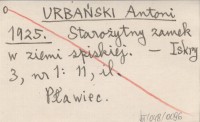 URBAŃSKI Antoni
1925. Starożytny zamek
w ziemi spiskiej. — Iskry
3, nr 1: 11, il.
Pławiec.